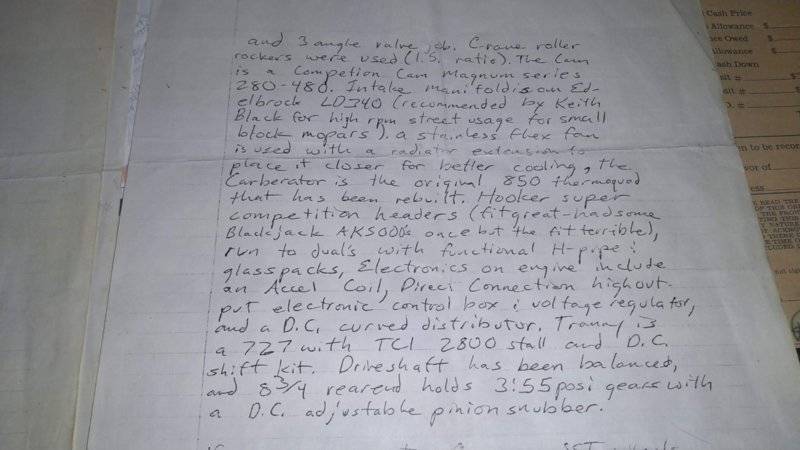 and 3 angle valve job. Crane roller
rockers were used (1.5. ratio). The Cam
is a Competion Cam Magnum series
280-480. Intake manifold is an Ed-
elbrock LD340 (recommended by Keith
Black for high rpm street usage for small
block mopars). a stainless flex fan
is used with a radiator extension to
place it closer for better cooling, the
Carberator is the original 850 thermoquad
that has been rebuilt. Hooker super
competition headers (fit great-had some
Blackjack AK5000's once but the fit terrible),
run to dual's with functional H-pipe &
glasspacks, Electronics on engine include
an Accel Coil, Direct Connection high out-
put electronic control box & voltage regulator,
and a D.C. curved distributor. Tranny is
a 727 with TCI 2800 stall and D.C.
shift kit. Driveshaft has been balanced,
and 8 3/4 rearend holds 3:55 posi gears with
a D.C. adjustable pinion snubber.
Cash Price
Allowance $
ce Owed $
llowance $
ash Down
sit # $
sit # $
D. # $
en to be recor
vor of
ess